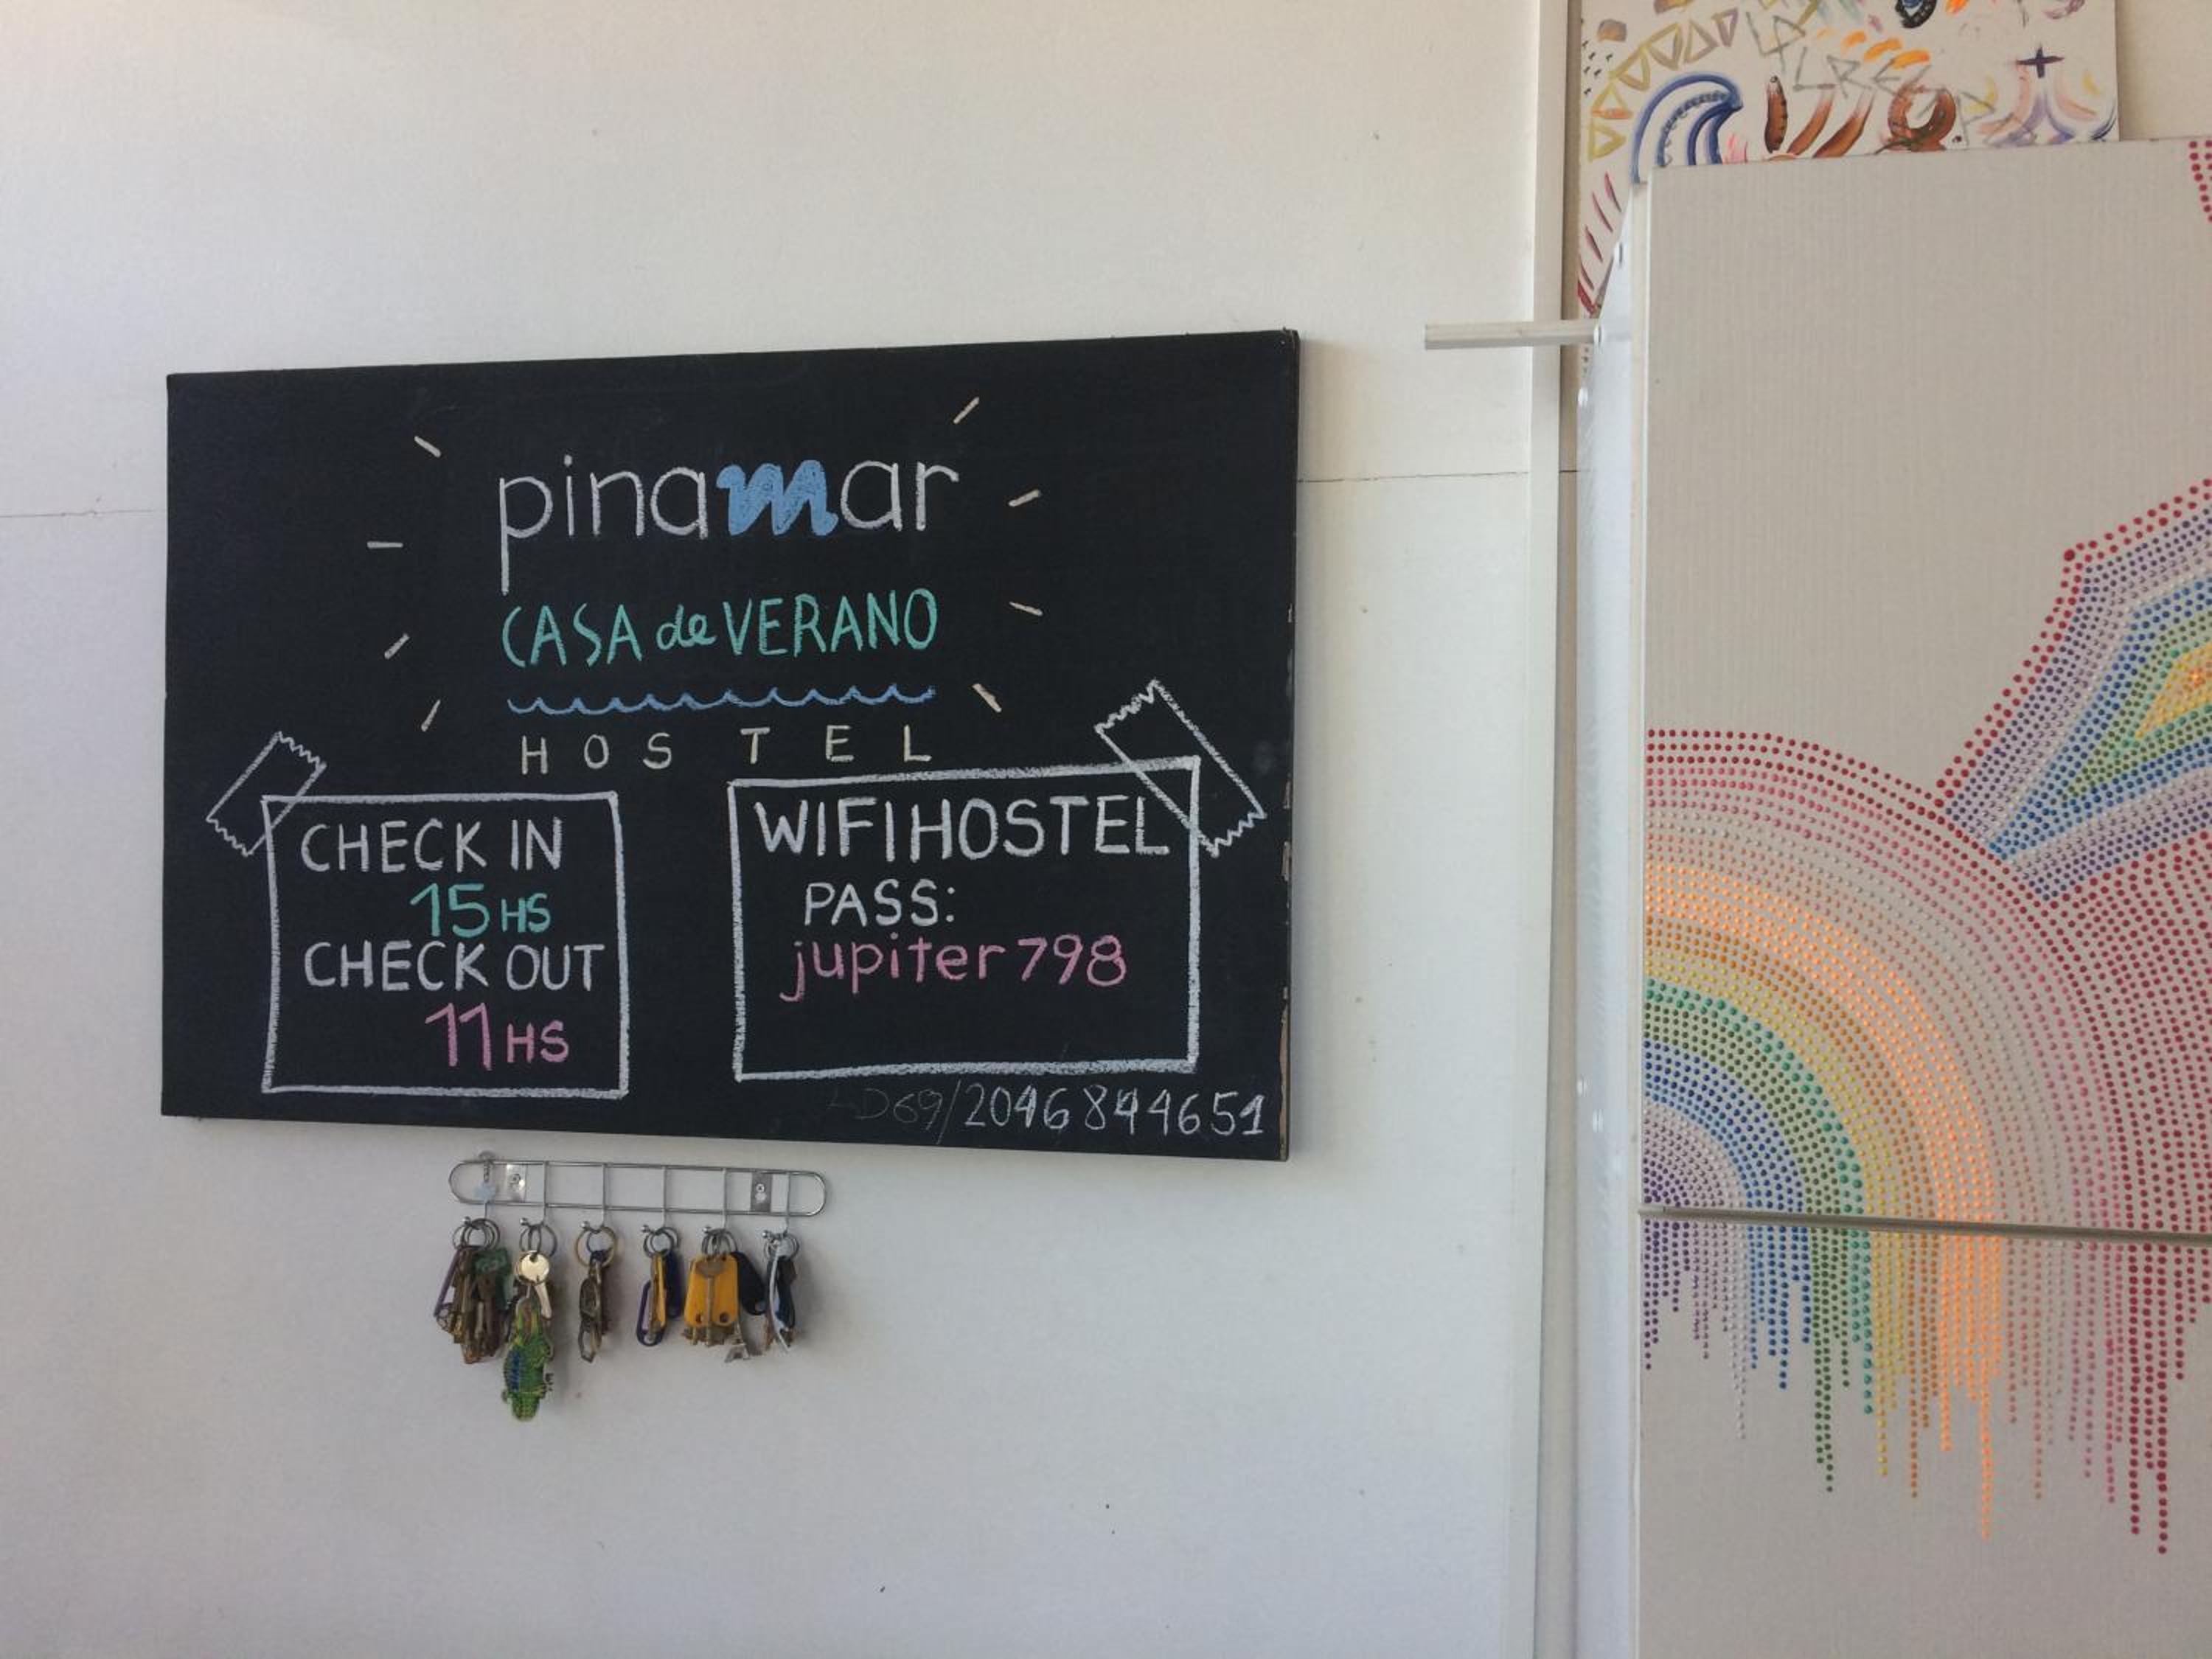 pinamar
CASA de VERANO
HOSTEL
CHECK IN
15 HS
CHECK OUT
11 HS
WIFI HOSTEL
PASS:
jupiter798
/2046844651